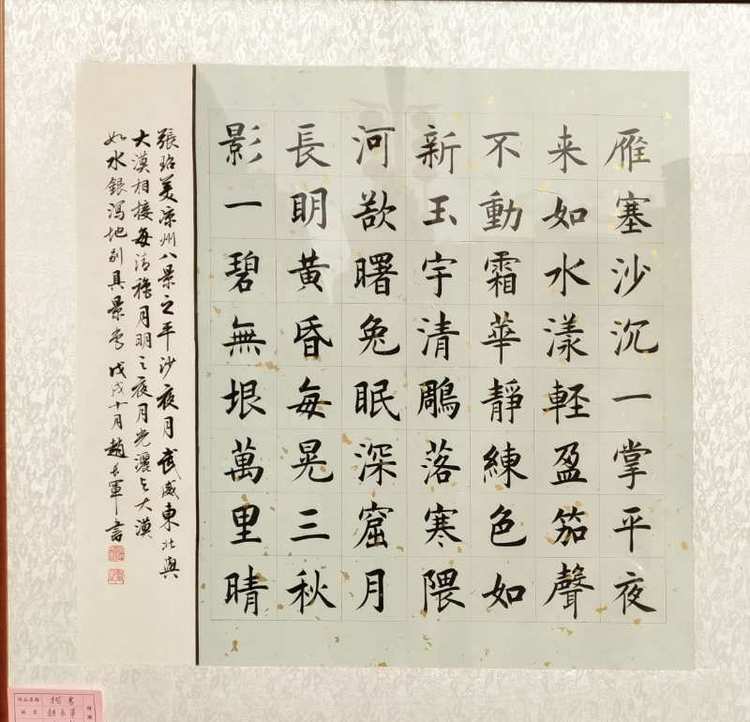 雁塞沙沉一掌平夜
来如水漾輕盈笳聲
不動霜華靜練色如
新玉宇清鵰落寒隈
河欲曙兔眠深窟月
長明黃昏每晃三秋
影一碧無垠萬里晴
張玿美涼州八景之平沙夜月武威東北與
大漠相接每清穐月明之夜月光灑之大漠
如水銀瀉地別具景色戊戌十月趙長軍書
楷書